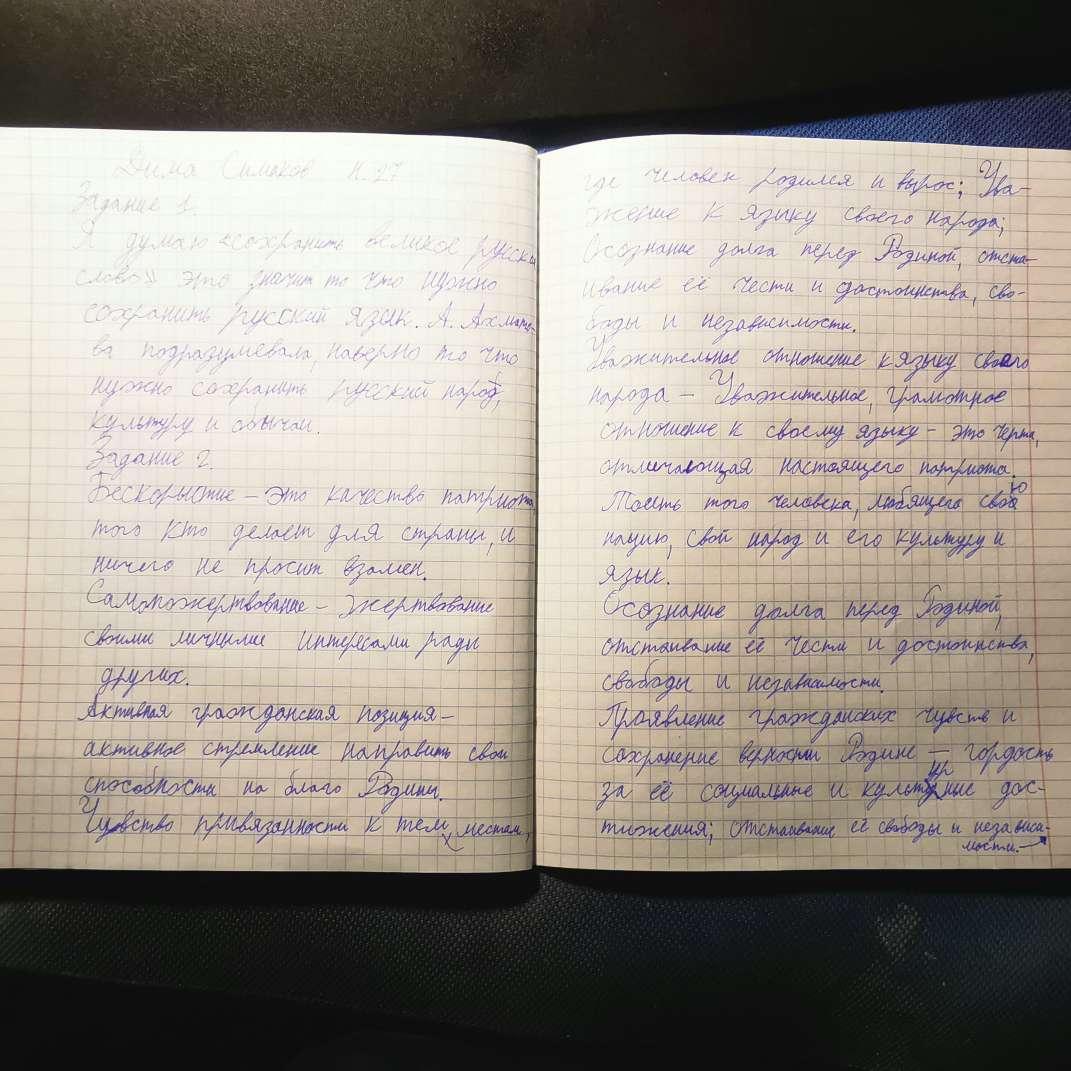 Дима Симаков н. 27
Задание 1.
Я думаю «сохранить великое русский
слово» это значит то что нужно
сохранить русский язык. А. Ахмато-
ва подразумевала, наверно то что
нужно сохранить русский народ,
культуру и обычаи.
Задание 2.
Бескорыстие – это качество патриота,
того кто делает для страны, и
ничего не просит взамен.
Самопожертвование – жертвование
своими личными интересами ради
других.
Активная гражданская позиция –
активное стремление направить свои
способности на благо Родины.
Чувство привязанности к тем местам,
где человек родился и вырос; Ува-
жение к языку своего народа;
Осознание долга перед Родиной, отста-
ивание её чести и достоинства, сво-
боды и независимости.
Уважительное отношение к языку своего
народа – Уважительное, грамотное
отношение к своему языку – это черта,
отличающая настоящего патриота.
Тоесть того человека, любящего свою
нацию, свой народ и его культуру и
язык.
Осознание долга перед Родиной,
отстаивание её чести и достоинства,
свободы и независимости.
Проявление гражданских чувств и
сохранение верности Родине – гордость
за её социальные и культурные дос-
тижения; отстаивание её свободы и независи-
мости.